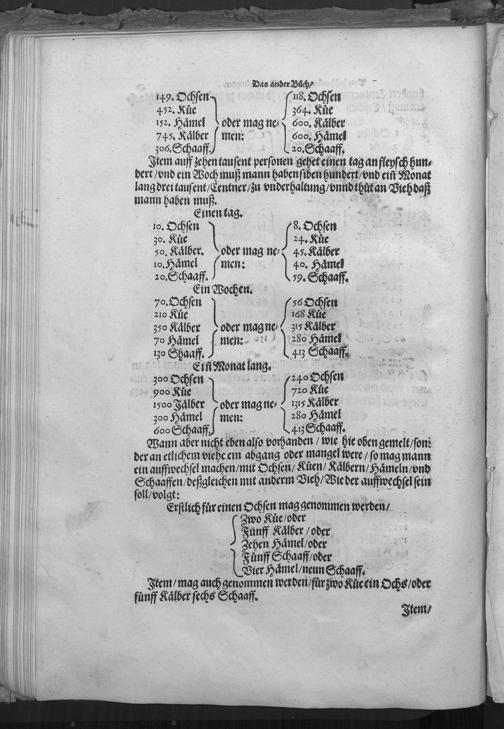 Das ander Bůch/
149. Ochsen 118. Ochsen
452. Küe 364. Küe
152. Hämel oder mag ne- 600. Kälber
745. Kälber men: 600. Hämel
306. Schaaff. 20. Schaaff.
Item auff zehen tausent personen gehet einen tag an fleysch hun-
dert/ vnd ein Woch muß mann haben siben hundert/ vnd ein Monat
lang drei tausent/ Centner/ zu vnderhaltung/ vnnd thůt an Vieh daß
mann haben muß.
Einen tag.
10. Ochsen 8. Ochsen
30. Küe 24. Küe
50. Kälber. oder mag ne- 45. Kälber
10. Hämel men: 40. Hämel
20. Schaaff. 59. Schaaff.
Ein Wochen.
70. Ochsen 56 Ochsen
210 Küe 168 Küe
350 Kälber oder mag ne- 315 Kälber
70 Hämel men: 280 Hämel
130 Shaaff. 413 Schaaff.
Ein Monat lang.
300 Ochsen 240 Ochsen
900 Küe 720 Küe
1500 Jälber oder mag ne- 1315 Kälber
300 Hämel men: 280 Hämel
600 Schaaff 413 Schaaff.
Wann aber nicht eben also vorhanden/ wie hie oben gemelt/ son-
der an etlichem viehe ein abgang oder mangel were/ so mag mann
ein auffwechsel machen/ mit Ochsen/ Küen/ Kälbern/ Hämeln/ vnd
Schaaffen/ deßgleichen mit anderm Vieh/ Wie der auffwechsel sein
soll/ volgt:
Erstlich für einen Ochsen mag genommen werden/
Zwo Küe/ oder
Fünff Kälber/ oder
Zehen Hämel/ oder
Fünff Schaaff/ oder
Vier Hämel/ neun Schaaff.
Item/ mag auch genommen werden/ für zwo Küe ein Ochs/ oder
fünff Kälber sechs Schaaff.
Item/